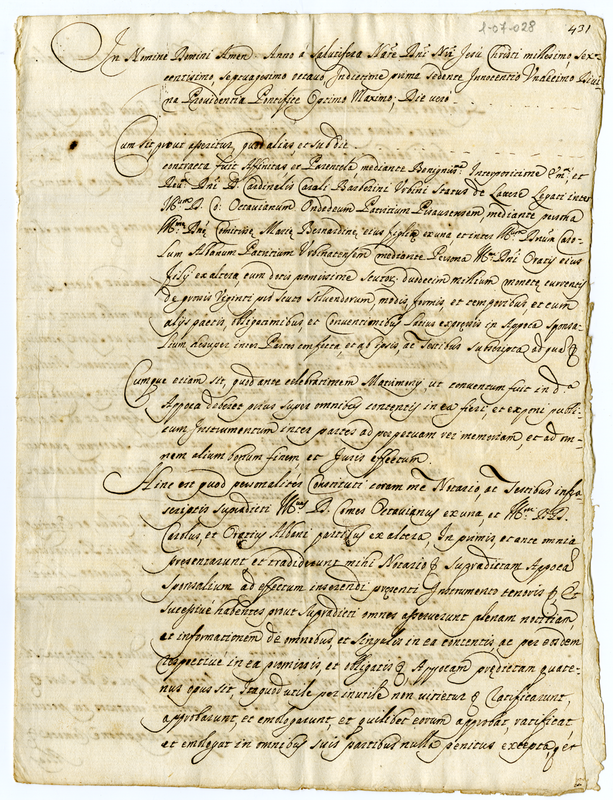 1-07-028
431
In Nomine Domini Amen. Anno a Salutifera Natte Dni Nri Jesu Christi millesimo, Sex=
centesimo Septuagesimo octavo Indictione prima Sedente Innocentio Undecimo Divi
na Providentia Pontifice Optimo Maximo; Die vero.
Cum sit prout asseritur, quod alias et sub die
contracta fuit Affinitas et Parentela mediante Benigniss: Interpositione Em: et
Rev: Dni D. Cardinalis Caroli Barberini Urbini Status de Latere Legati inter
D. Co: Octavianum Ondedeum Patritium Pisaurensem mediante persona
Dnę Comitissę Marię Bernardinę, eius filię ex una et inter Dnum Caro-
lum Albanum Patritium Urbinatensem mediante Persona Dni Oratij eius
filij ex altera cum dotis promissione Scutor: duodecim millium monetę currentis
de grossis Viginti pro Scuto Solvendorum modis, formis, et temporibus, et cum
alijs pactis, obligationibus, et Conventionibus latius expressis in Apoca Sponsa-
lium desuper inter Partes confecta, et ab ipsis, ac Testibus Subscripta ad quā &
Cumque etiam sit, quod ante celebrationem Matrimonij ut conventum fuit in da
Apoca deberet prius super omnibus contentis in ea fieri, et exponi publi-
cum Instrumentum inter partes ad perpetuam rei memoriam, et ad om-
nem alium bonum finem, et Juris effectum.
Hinc est quod personaliter Constituti coram me Notario, ac Testibus infra-
scriptis Supradicti D. Comes Octavianus ex una, et DD.
Carolus, et Oratius Albani partibus ex altera, In primis et ante omnia
presentarunt et tradiderunt mihi Notario & Supradictam Apocā
Sponsalium ad effectum inserendi pręsenti Instrumento tenoris & Et
Successive habentes prout Supradicti omnes asseruerunt plenam notitiam,
et informationem de omnibus, et Singulis in ea contentis, ac per eosdem
respective in ea promissis, et obligatis & Apocam prędictam quate-
nus opus sit, itaquod utile per inutile non vitietur & Ratificarunt,
approbarunt et emologarunt, et quilibet eorum approbat ratificat,
et emologat in omnibus suis partibus nulla penitus excepta, & et